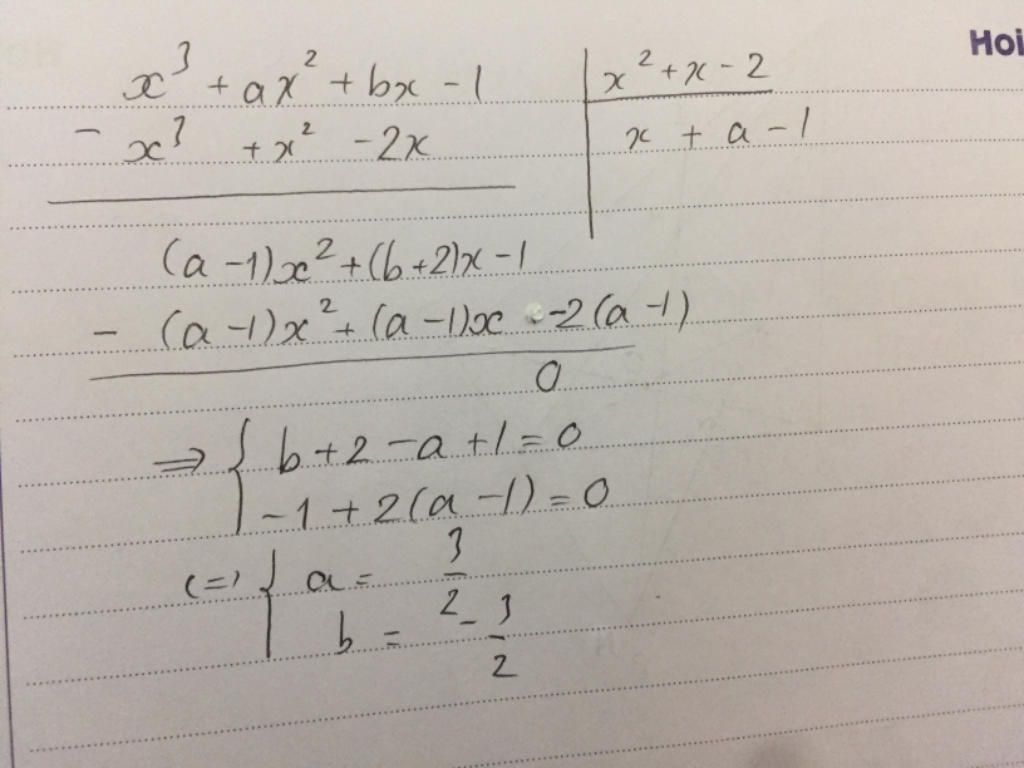 Hoi
x³ + ax² + bx - 1 | x² + x - 2
- x³ + x² - 2x | x + a - 1
(a - 1)x² + (b + 2)x - 1
- (a - 1)x² + (a - 1)x - 2(a - 1)
0
⇒ { b + 2 - a + 1 = 0
- 1 + 2(a - 1) = 0
(=) { a = 3/2
b = - 3/2